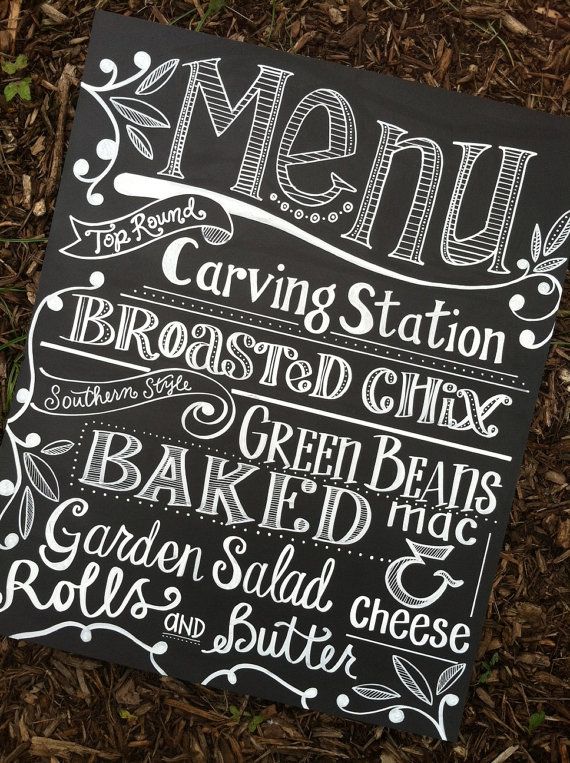 Menu
Top Round
Carving Station
BROASTED CHIX
Southern Style
GREEN BEANS
BAKED mac
& cheese
Garden Salad
Rolls AND Butter